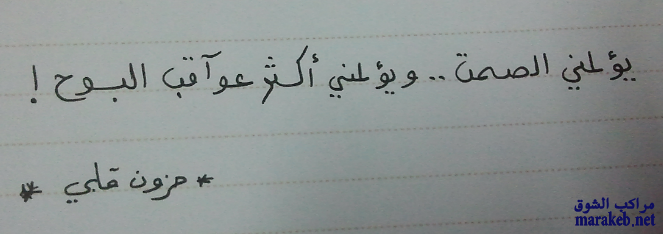 يؤلمني الصمت .. ويؤلمني أكثر عوآقب البوح !
* حزون قلبي *
مراكب الشوق
marakeb.net